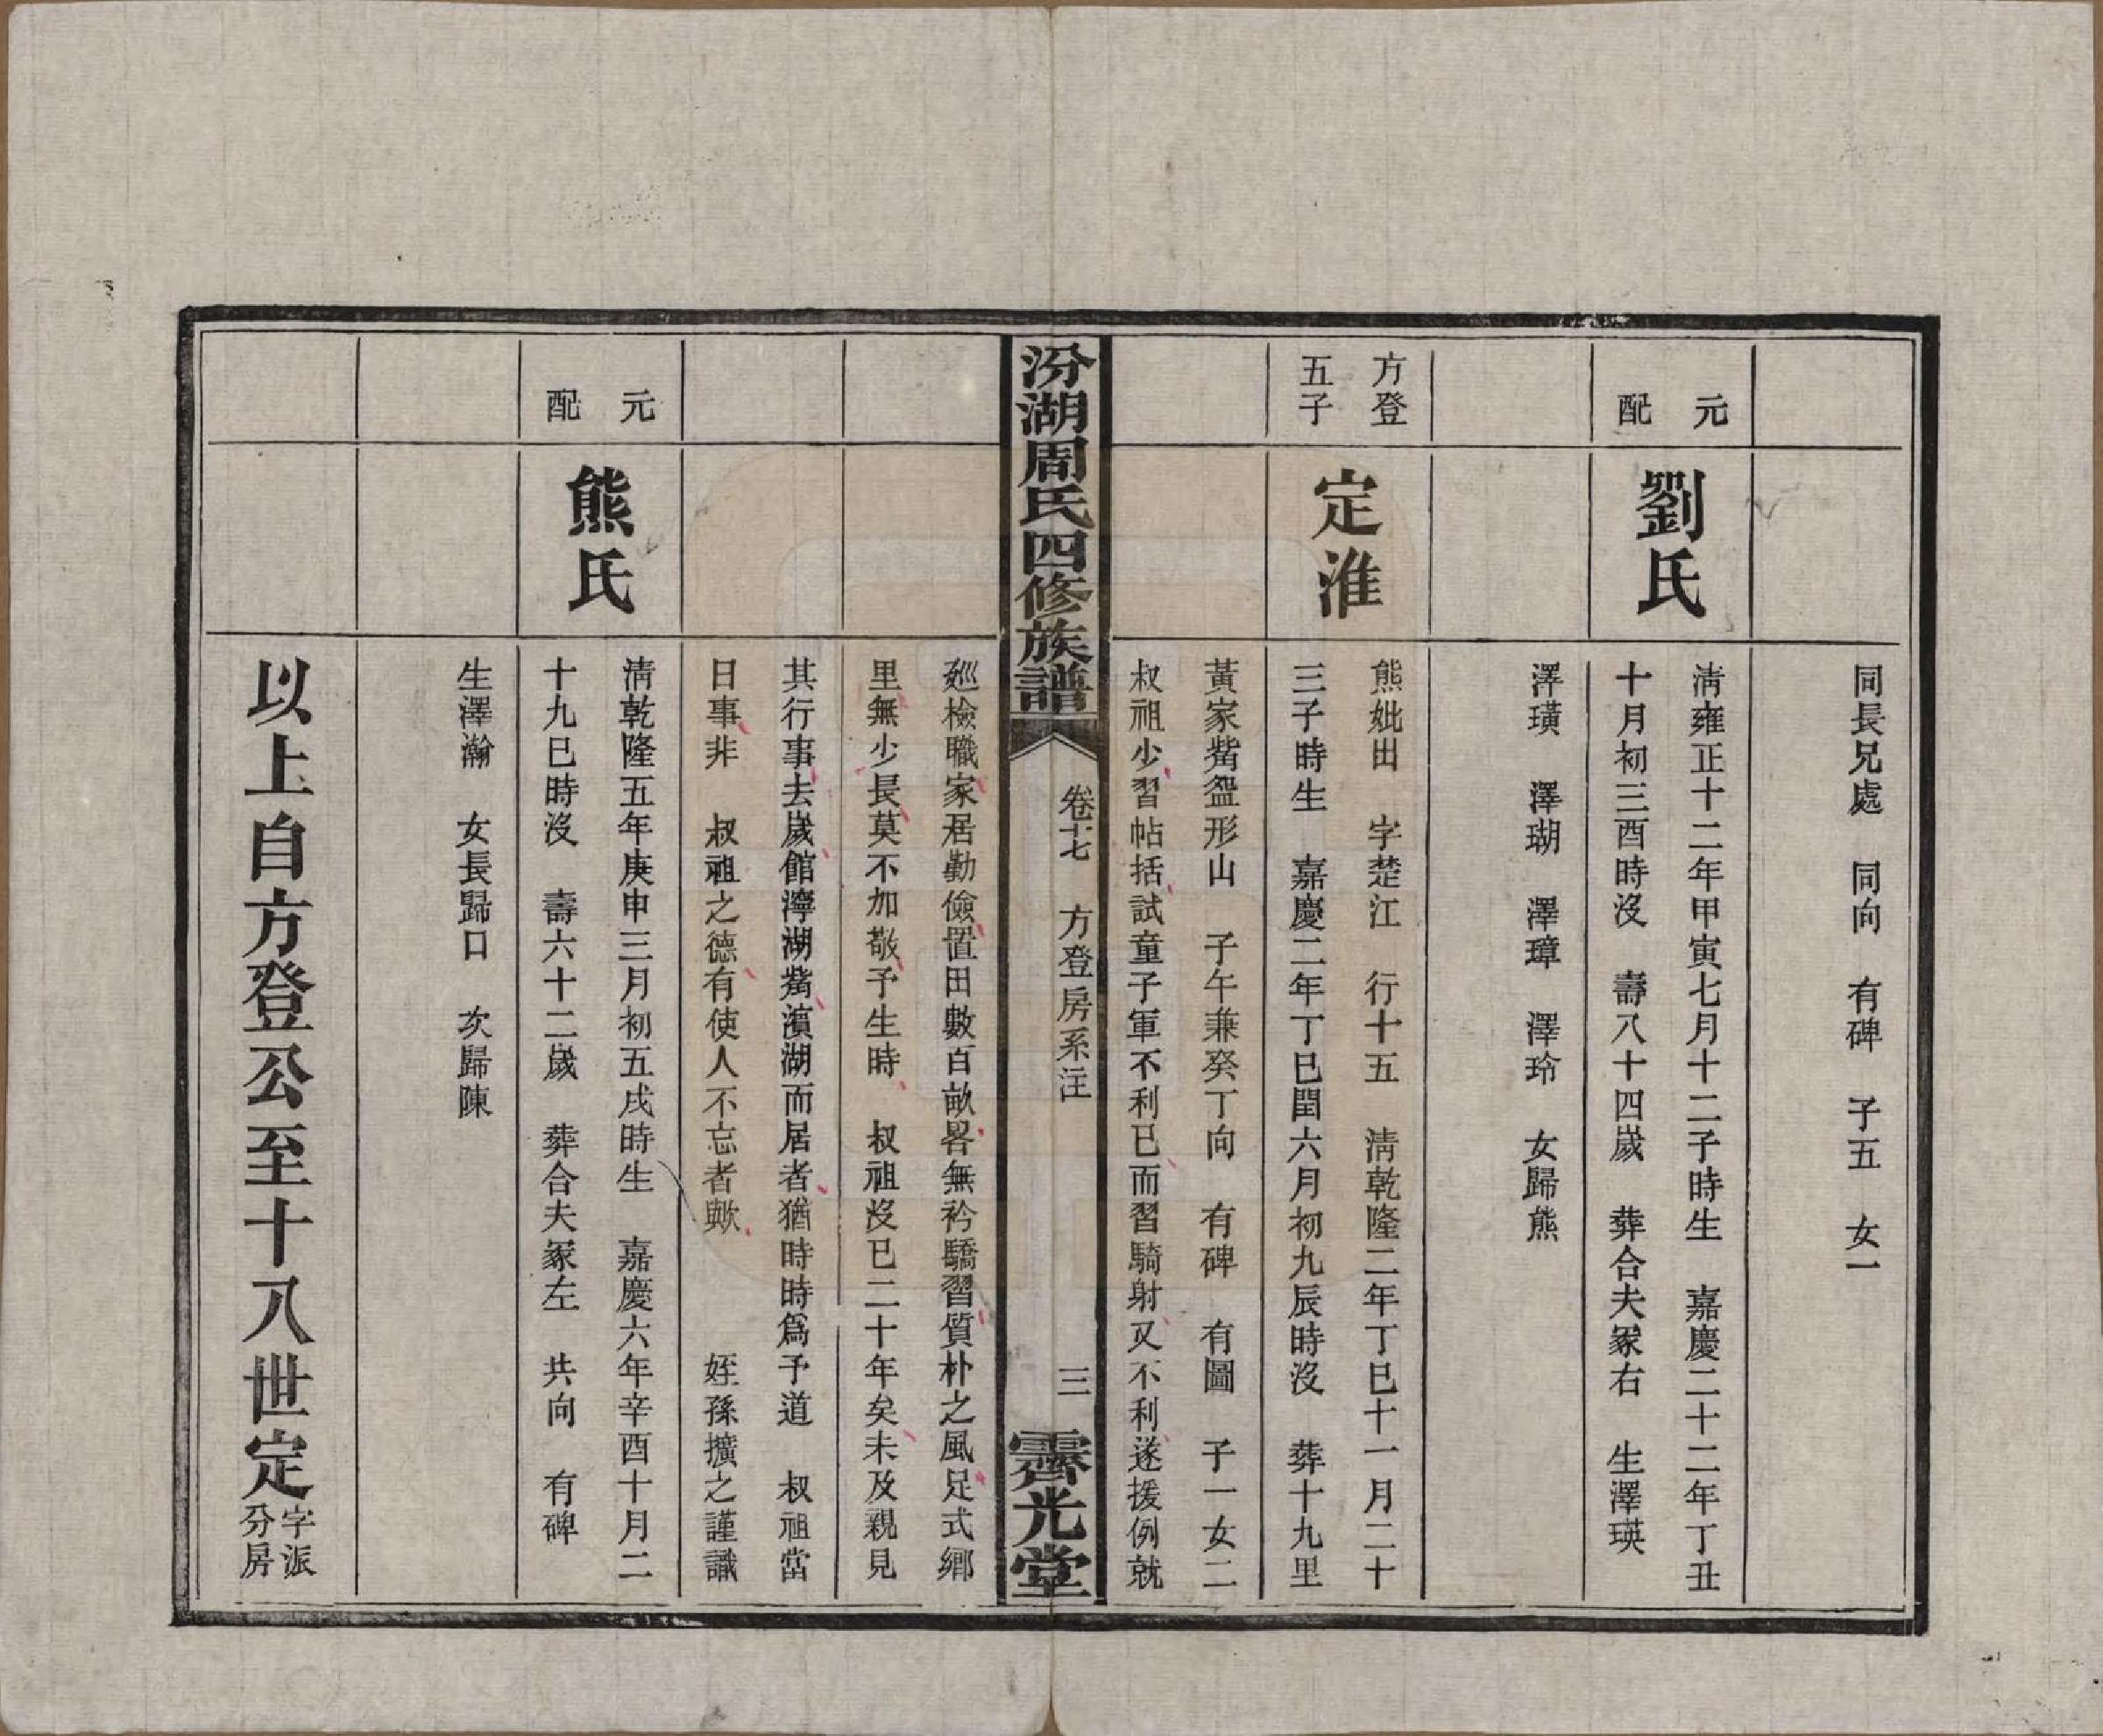 同長兄處　同向　有碑　子五　女一
元配
劉氏
清雍正十二年甲寅七月十二子時生　嘉慶二十二年丁丑
十月初三酉時沒　壽八十四歲　葬合夫冢右　生澤瑛
澤璜　澤瑚　澤璋　澤玲　女歸熊
方登
五子
定淮
熊妣出　字楚江　行十五　清乾隆二年丁巳十一月二十
三子時生　嘉慶二年丁巳閏六月初九辰時沒　葬十九里
黃家觜盤形山　子午兼癸丁向　有碑　有圖　子一女二
叔祖少習帖括試童子軍不利已而習騎射又不利遂援例就
汾湖周氏四修族譜
卷十七　方登房系注
三
霽光堂
廵檢職家居勤儉置田數百畝畧無衿驕習質朴之風足式鄉
里無少長莫不加敬予生時　叔祖沒已二十年矣未及親見
其行事去歲館濘湖觜濱湖而居者猶時時爲予道　叔祖當
日事非　叔祖之德有使人不忘者歟　姪孫擴之謹識
元配
熊氏
清乾隆五年庚申三月初五戌時生　嘉慶六年辛酉十月二
十九巳時沒　壽六十二歲　葬合夫冢左　共向　有碑
生澤瀚　女長歸口　次歸陳
以上自方登公至十八世定字派分房